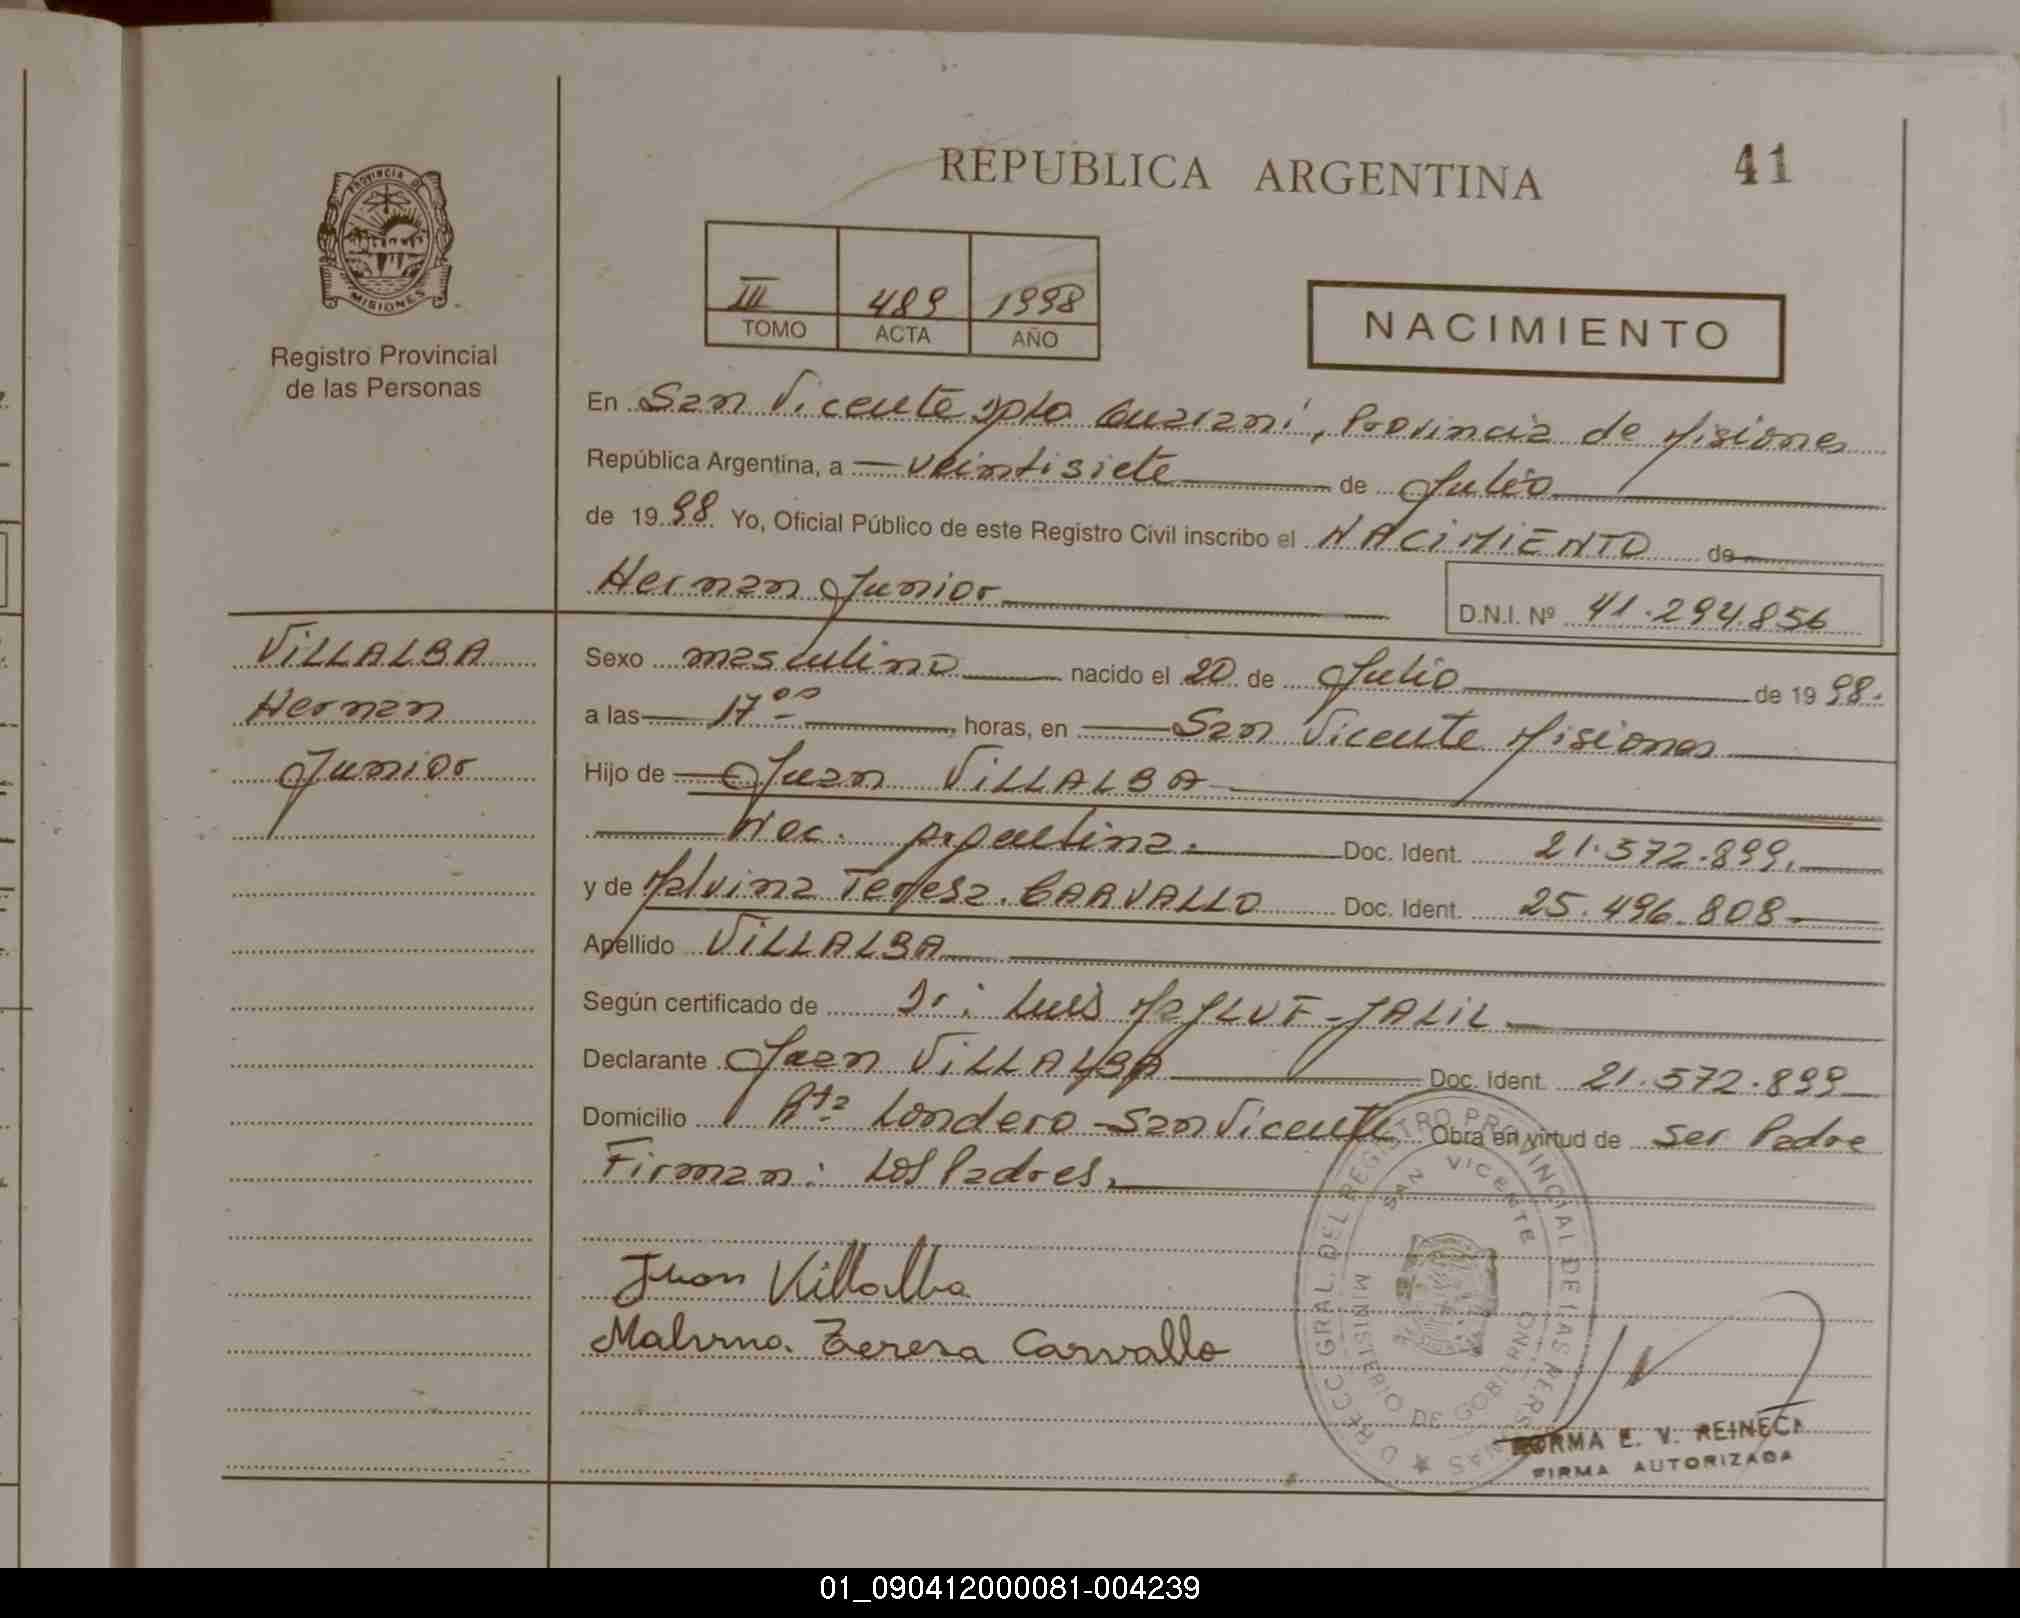 REPUBLICA ARGENTINA
41
PROVINCIA DE
MISIONES
Registro Provincial
de las Personas
III 489 1998
TOMO ACTA AÑO
NACIMIENTO
En San Vicente Dpto Guaraní, Provincia de Misiones
República Argentina, a veintisiete de Julio
de 1998 Yo, Oficial Público de este Registro Civil inscribo el NACIMIENTO de
Hernan Junior
D.N.I. Nº 41.294.856
VILLALBA
Hernan
Junior
Sexo masculino nacido el 20 de Julio de 1998.
a las 17 00 horas, en San Vicente Misiones
Hijo de Juan VILLALBA
Nac. Argentina. Doc. Ident. 21.572.899.
y de Malvina Teresa CARVALLO Doc. Ident. 25.496.808
Apellido VILLALBA
Según certificado de Dr: Luis JALIL
Declarante Juan VILLALBA Doc. Ident. 21.572.899
Domicilio Rta Londero - San Vicente Obra en virtud de Ser Padre
Firman: Los Padres.
Juan Villalba
Malvina Teresa Carvallo
DIRECC. GRAL. DEL REGISTRO PROVINCIAL DE LAS PERSONAS
SAN VICENTE
MINISTERIO DE GOBIERNO
NORMA E. V. REINECK
FIRMA AUTORIZADA
01_090412000081-004239